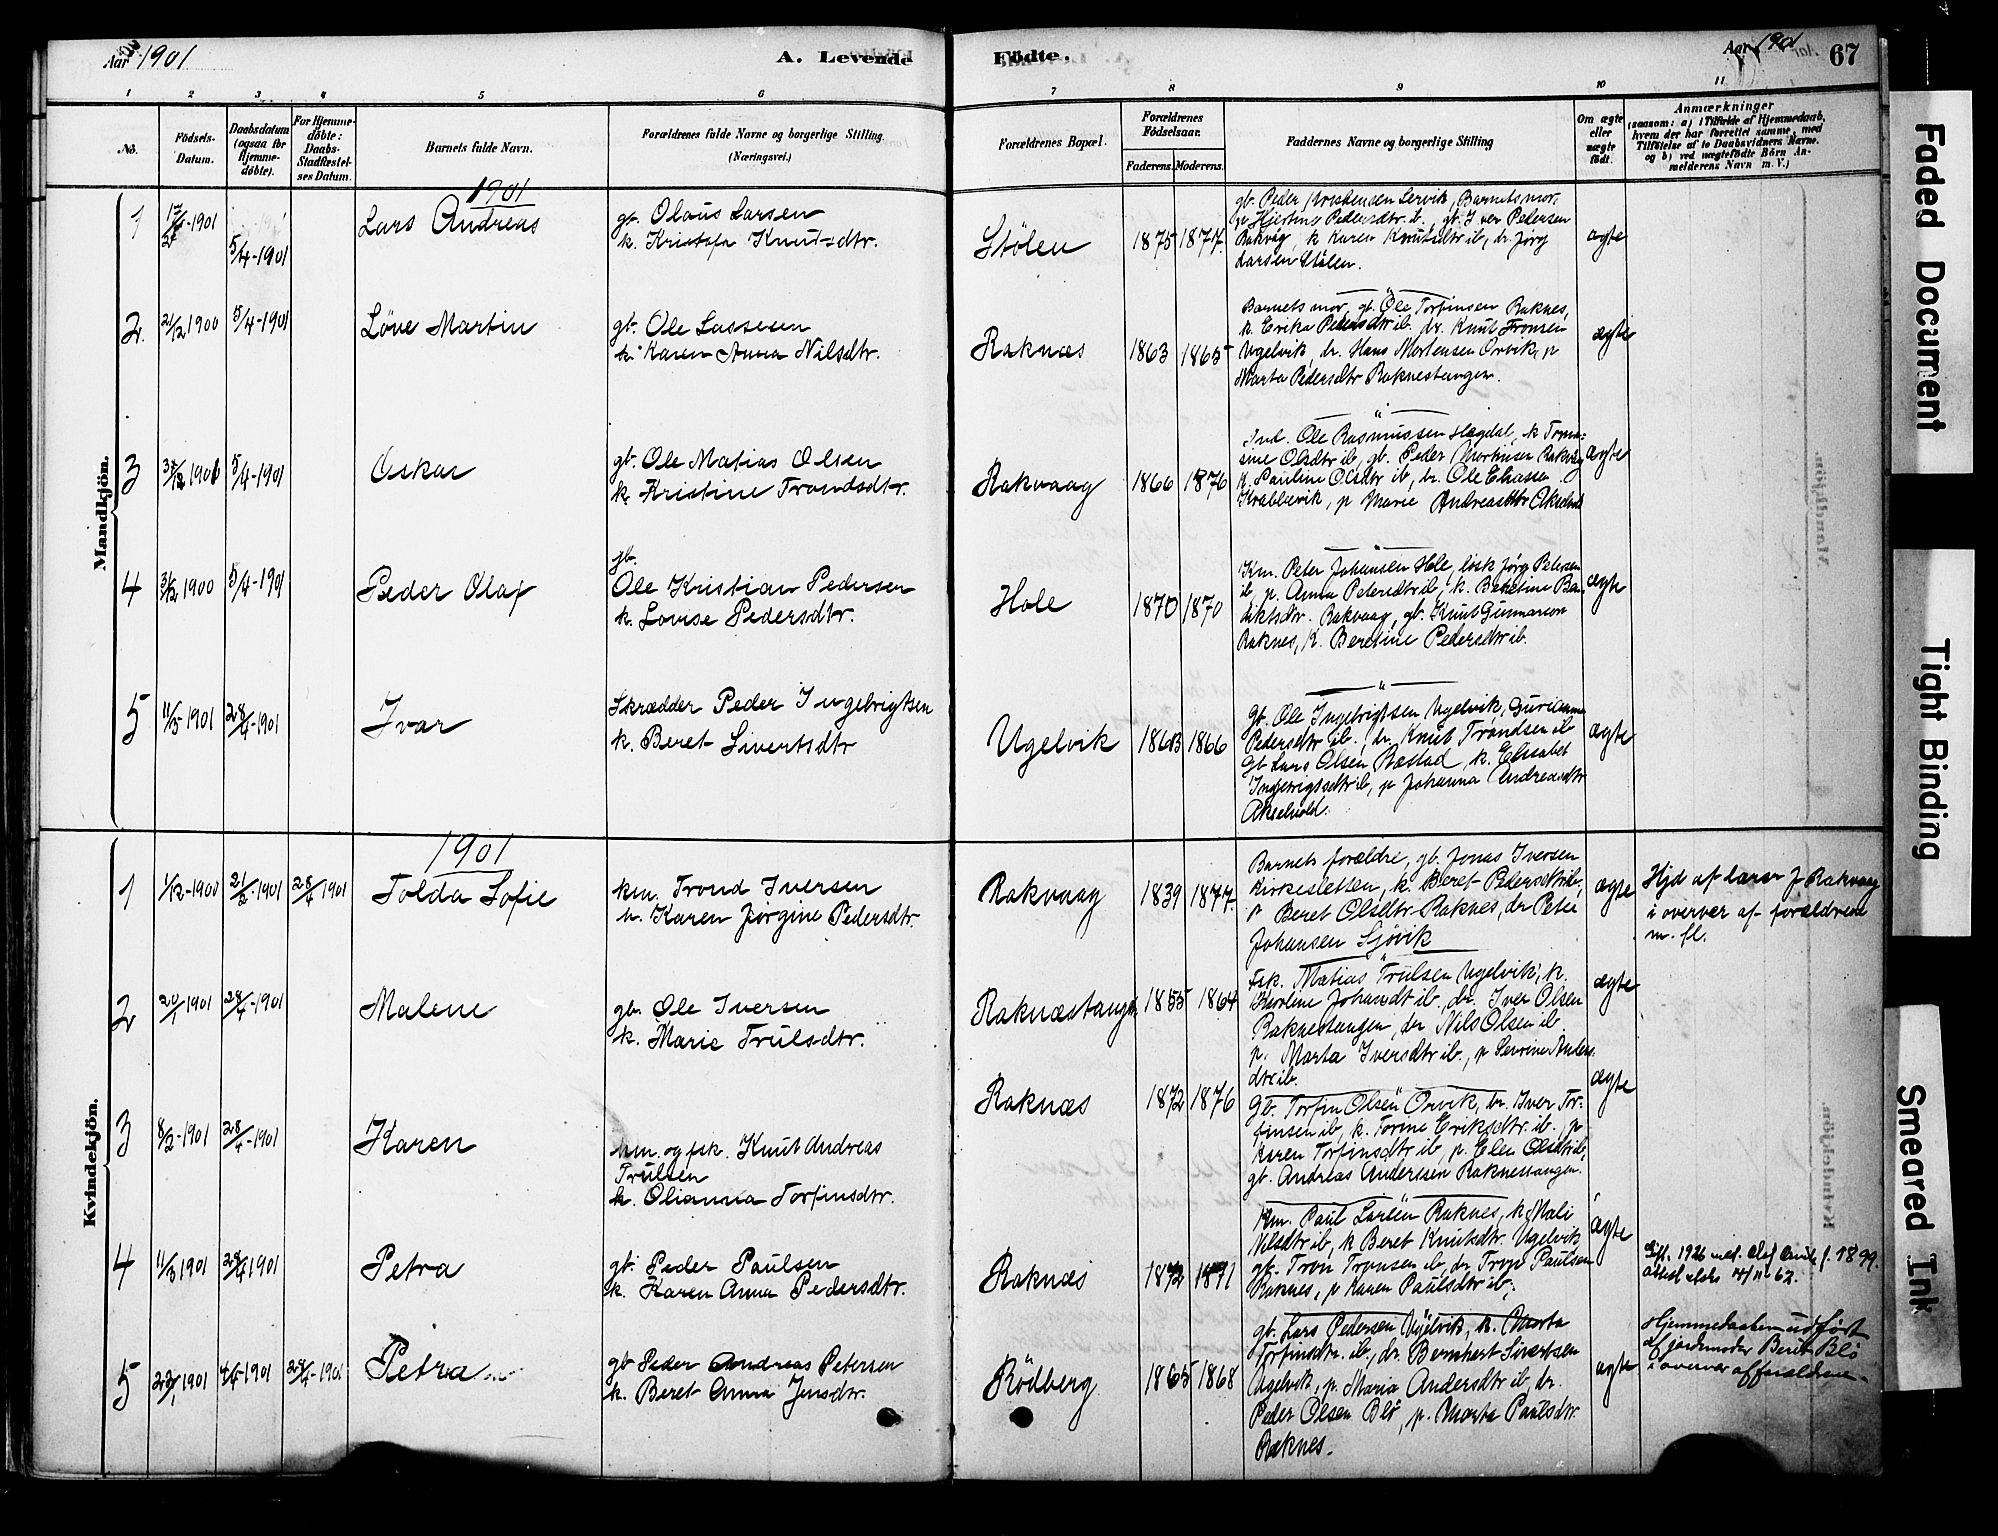 Aar 1901
A. Levende
Födte.
Aar 1901
67
1 2 3 4 5 6 7 8 9 10 11
No.
Födsels-
Datum.
Daabsdatum
(ogsaa for
Hjemme-
döbte).
For Hjemme-
döbte:
Daabs-
Stadfæstel-
ses Datum.
Barnets fulde Navn.
Forældrenes fulde Navne og borgerlige Stilling.
(Næringsvei.)
Forældrenes Bopæl.
Forældrenes
Födselsaar.
Faderens. Moderens.
Faddernes Navne og borgerlige Stilling
Om ægte
eller
uægte
født.
Anmærkninger
(saasom: a) i Tilfælde af Hjemmedaab,
hvem der har forrettet samme, med
Tilföielse af to Daabsvidners Navne.
og b) ved uægtefödte Börn An-
melderens Navn m. V.)
Mandkjön.
1901
1
5/4-1901
Lars Andreas
gb. Olaus Larsen
k. Kristofa Knutsdtr.
Stölen
1875 1877.
gb. Peder Kristensen Lervik, Barnets mor,
Hjertine Pedersdtr. ib., gb. Iver Pedersen
Rakvåg, k. Karen Knutsdtr ib, dr. Jørg
Larsen Stölen.
ægte
2.
21/12 1900
5/4-1901
Löve Martin
gb. Ole Lassesen
k. Karen Anna Nilsdtr.
Raknæs
1863 1865
Barnets mor, gb. Ole Torfinsen Raknes,
k. Erika Pedersdtr ib. dr. Knut Tronsen
Ugelvik, dr. Hans Mortensen Orvik, p
Marta Pedersdtr Raknestangen.
ægte
3
5/4-1901
Oskar
gb. Ole Matias Olsen
k. Kristine Trondsdtr.
Rakvaag
1866 1876
Ind. Ole Rasmussen Hægdal, k Toma-
sine Olsdtr ib, gb. Peder Mortensen Rakvåg
k. Pauline Olsdtr ib, dr. Ole Eliassen
Krabbevik, p Marie Andreasdtr
ægte
4
3/12 1900
5/4-1901
Peder Olaf
gb.
Ole Kristian Pedersen
k. Lovise Pedersdtr.
Hole
1870 1870
Km. Peter Johansen Hole, løsk Jørg Petersen
ib, p. Anna Petersdtr ib, k. Beretine Ben-
diktsdtr. Rakvaag, gb. Knut Gunnarson
Raknes, k. Beretine Pedersdtr ib.
ægte
5
11/3 1901
28/4-1901
Ivar
Skrædder Peder Ingebrigtsen
k. Beret Sivertsdtr
Ugelvik
1863 1866
gb. Ole Ingebrigtsen Ugelvik,
Pedersdtr ib., dr. Knut Trondsen ib
gb Lars Olsen Bæstad, k. Elisabet
Ingebrigtsdtr ib, p Johanna Andreasdtr
Akselvold.
ægte
Kvindekjön.
1901
1
1/12-1900
21/2-1901
28/4 1901
Tolda Sofie
km. Trond Iversen
h. Karen Jørgine Pedersdtr.
Rakvaag
1839 1877.
Barnets forældre, gb. Jonas Iversen
Kirkesletten, k. Beret Pedersdtr ib.
p Beret Olsdtr Raknes, dr Peter
Johansen Sjövik
ægte
Hjd af lærer J Rakvaag
i overvær af forældrene
m. fl.
2
20/1 1901
28/4-1901
Malene
gb. Ole Iversen
k. Marie Trulsdtr.
Raknæstangen
1855 1864
Fsk. Matias Trulsen Ugelvik, k.
Karoline Johansdt ib., dr. Iver Olsen
Raknestangen, dr Nils Olsen ib.
p. Marta Iversdtr ib., p Severine Anders-
dtr ib.
ægte
3
8/2-1901
28/4-1901
Karen
km. og fsk. Knut Andreas
Trulsen
k. Olianna Torfinsdtr.
Raknæs
1872 1876
gb. Torfin Olsen Orvik, dr. Iver Tor-
finsen ib, k. Torine Eriksdtr. ib., p
Karen Torfinsdtr ib, p. Elen Olsdtr ib,
gb. Andreas Andersen Raknestangen.
ægte
4
11/3 1901
28/4 1901
Petra
gb. Peder Paulsen
k. Karen Anna Pedersdtr.
Raknæs
1872 1871
Km. Paul Larsen Raknes, k. Mali
Nilsdtr ib, k Beret Knutsdtr. Ugelvik
gb. Tron Tronsen ib, dr. Tron Paulsen
Raknes, p Karen Paulsdtr ib.
ægte
Gift. 1926 med. Olaf f. 1899.
5
1901
4/4-1901
28/4-1901
Petra
gb Peder Andreas Petersen
k. Beret Anna Jensdtr.
Rödberg
1865 1868
gb. Lars Pedersen Ugelvik, k. Marta
Torfinsdtr. ib., dr. Bernhart Sivertsen
Ugelvik, p. Maria Andersdtr ib, dr.
Peder Olsen Blö, p. Marta Paulsdtr.
Raknes.
ægte
Hjemmedaaben udført
af jordmoder Beret Blö
i overvær af forældrene.
Faded Document
Tight Binding
Smeared Ink